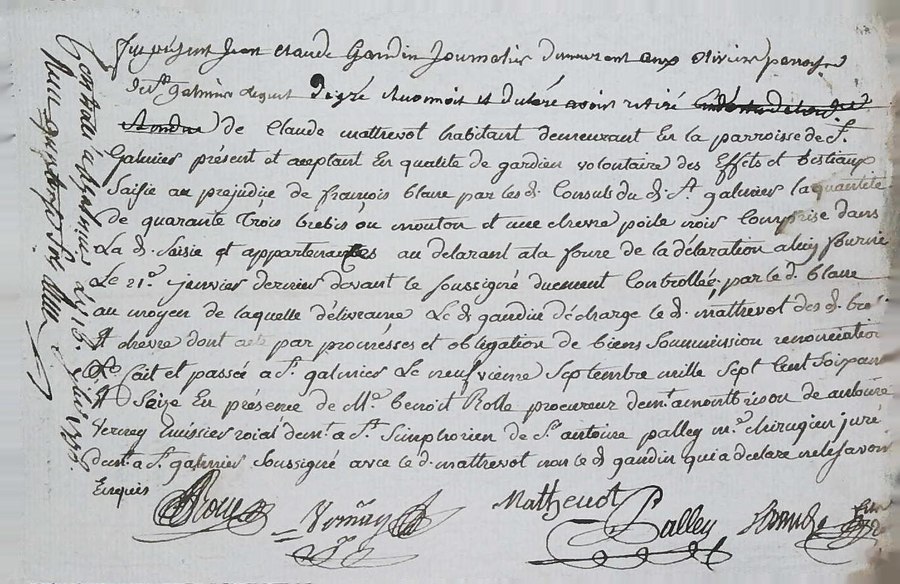 Fut présent Jean Claude Gaudin Journalier demeurant aux oliviers parroisse
du St galmier lequel de gré a reconnu et declaré avoir retiré
de Claude mattrevot habitant demeurant En la parroisse de St
Galmier présent et aceptant En qualité de gardien volontaire des Effets et Bestiaux
Saisie au prejudice de françois blanc par les d. Consuls du d. St galmier la quantité
de quarante trois brebis ou mouton et une chevre poile noir Comprise dans
La d. saisie et appartenantes au delarant a la forme de la déclaration a luy fournie
Le 21e janvier dernier devant le soussigné duement Controllée, par le d. blanc
au moyen de laquelle délivrance Le d. gaudin décharge le d. mattrevot des d. bre
et chevre dont acte par promesses et obligation de biens Soummission renonciation
fait et passé a St galmier Le neufvieme Septembre mille Sept Cent Soixante
et Seize En présence de Me benoit Rolle procureur demt a montbrison de antoine
Verney huissier roial demt a St Simphorien de Sr antoine palley me chirugien juré
demt a St galmier Soussigné avec le d. mattrevot non le d. gaudin qui a declare ne le savoir
Enquis
Rolle Verney Mathevot Palley